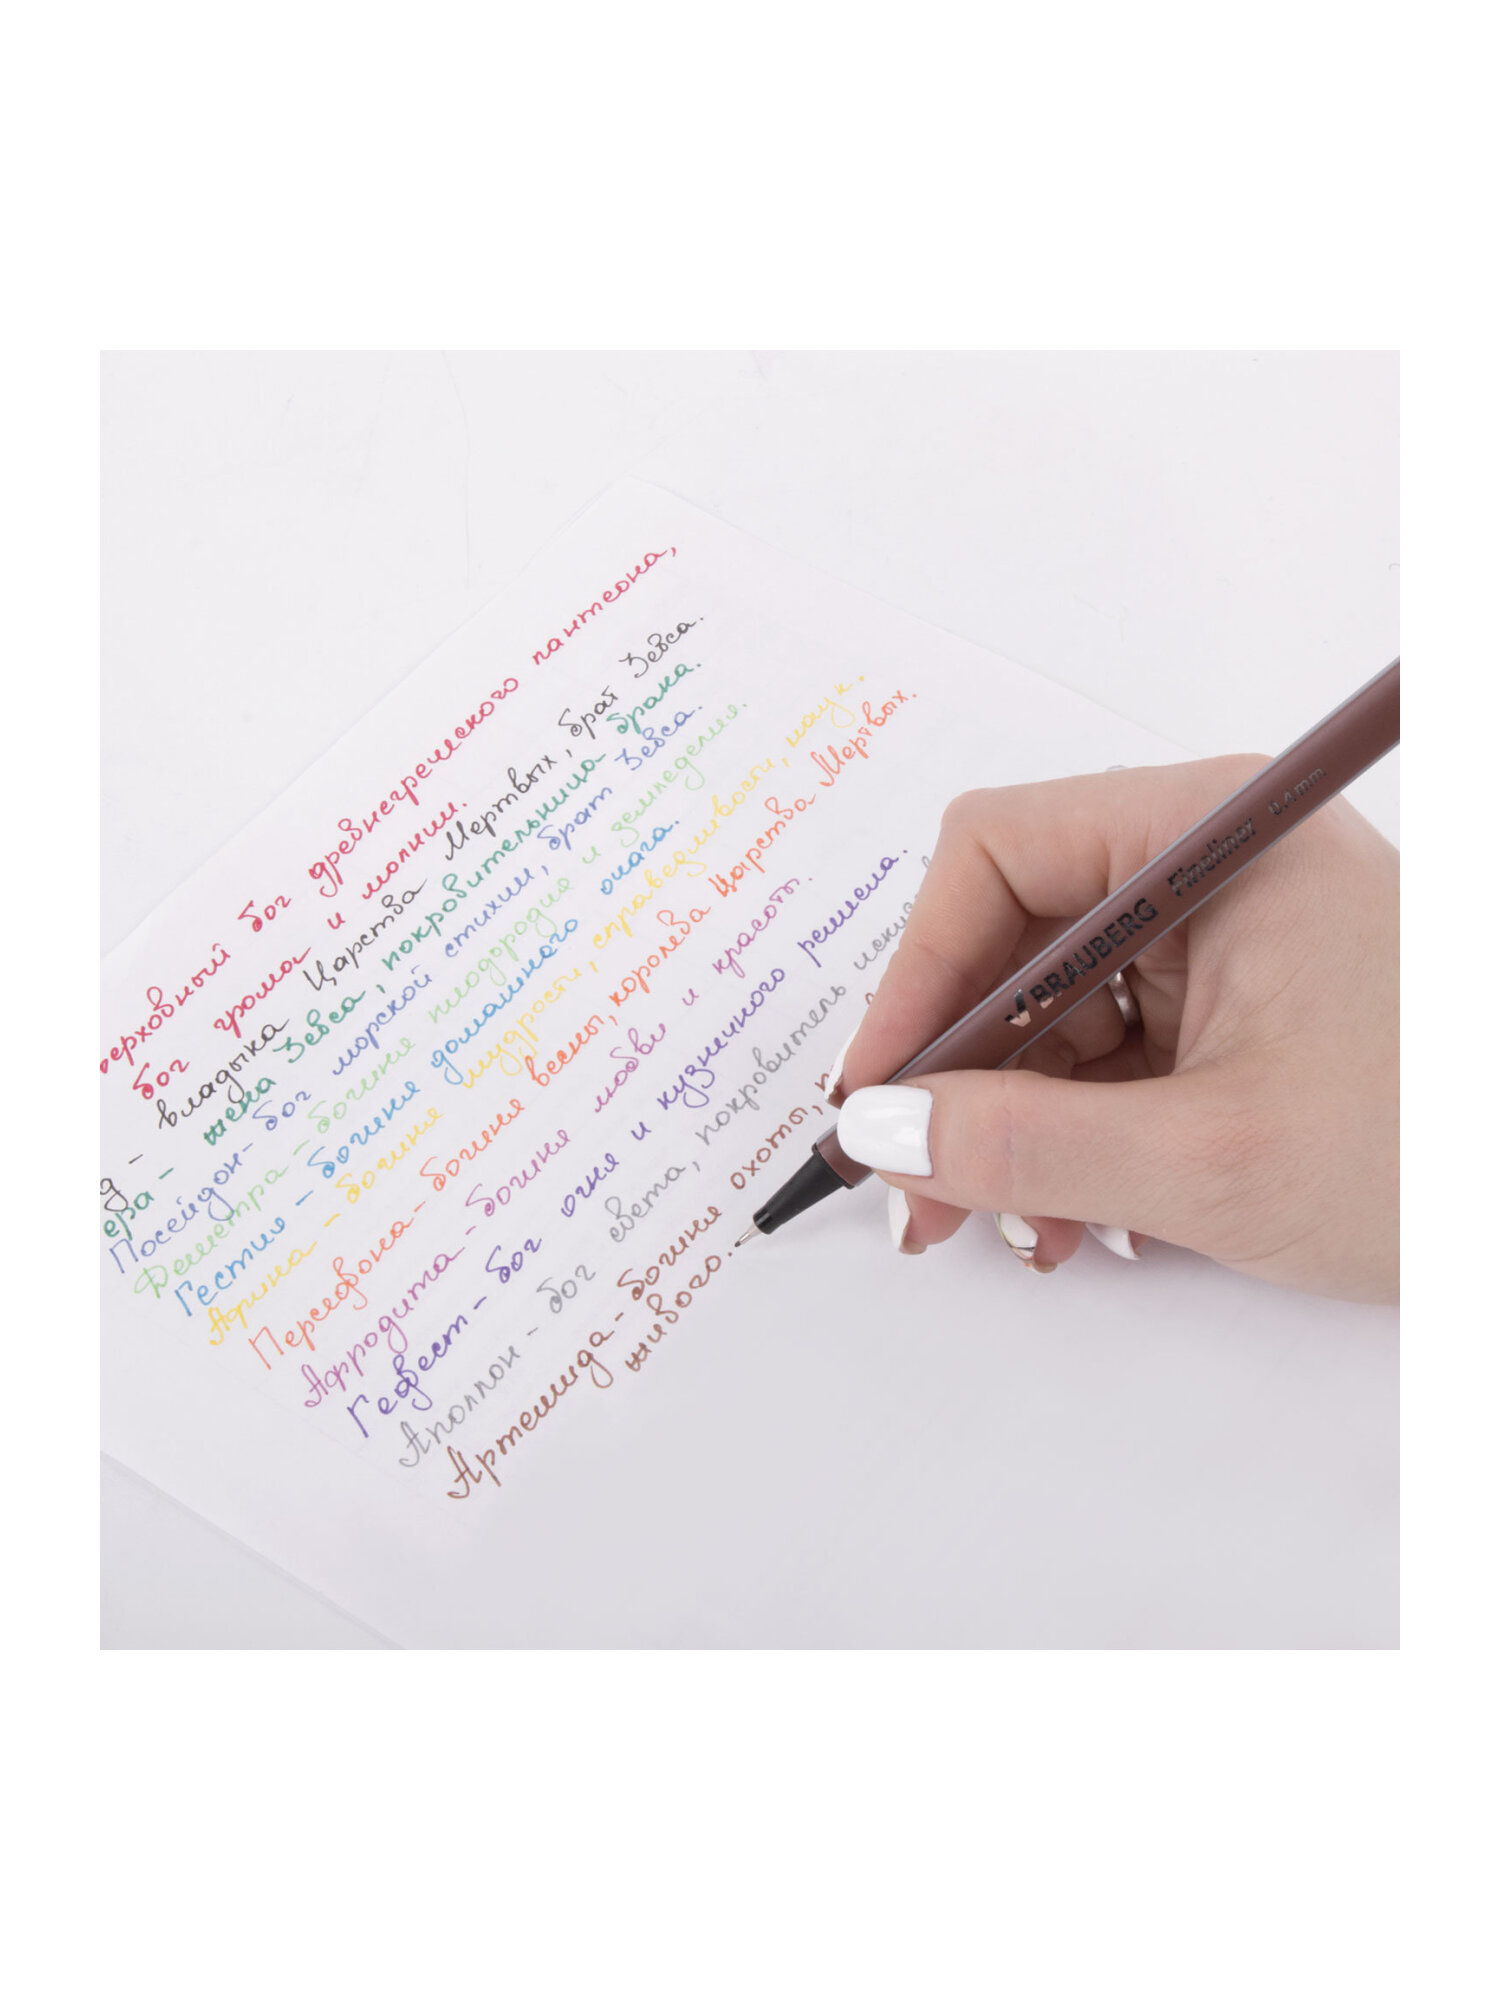 верховный бог древнегреческого пантеона,
бог грома и молнии.
д - владыка Царства Мертвых, брат Зевса.
ера - жена Зевса, покровительница брака.
Посейдон - бог морской стихии, брат Зевса.
Деметра - богиня плодородия и земледелия.
Гестия - богиня домашнего очага.
Афина - богиня мудрости, справедливости, наук.
Персефона - богиня весны, королева Царства Мертвых.
Афродита - богиня любви и красоты.
Гефест - бог огня и кузнечного ремесла.
Аполлон - бог света, покровитель искусс
Артемида - богиня охоты,
живого.
BRAUBERG Fineliner 0,4mm